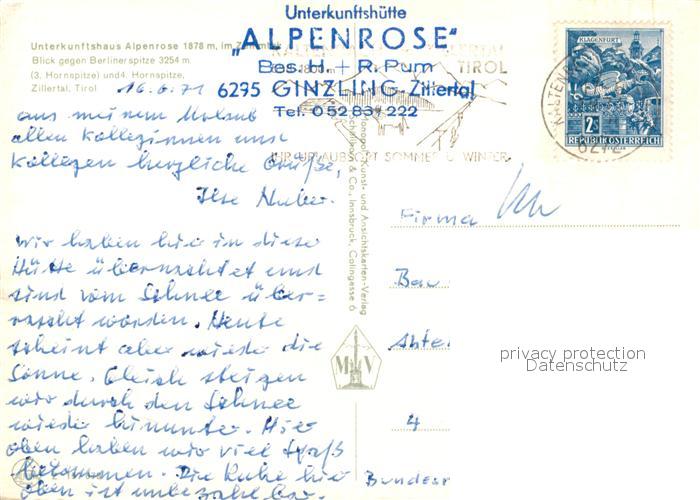 Unterkunftshütte
„ALPENROSE“
Bes. H. + R. Pum
6275 GINZLING-Zillertal
Tel. 052 83/ 222
Unterkunftshaus Alpenrose 1878 m, im
Blick gegen Berlinerspitze 3254 m.
(3. Hornspitze) und 4. Hornspitze,
Zillertal, Tirol
16.6.71
TIROL
IHR URLAUBSORT SOMMER U. WINTER
KLAGENFURT
2S
REPUBLIK ÖSTERREICH
aus meinem Urlaub
allen Kolleginnen und
Kollegen herzliche Grüße,
Ilse Huber.
Wir haben hier in diese
Hütte übernachtet und
sind vom Schnee über=
rascht worden. Heute
scheint aber wieder die
Sonne. Gleich steigen
wir durch den Schnee
wieder hinunter. Hier
oben haben wir viel Spaß
bekommen. Die Ruhe hier
oben ist unbezahlbar.
Kunst- und Ansichtskarten-Verlag
& Co., Innsbruck, Colingasse 6
M V
Firma
Bau
Abte
4
Bundesr
privacy protection
Datenschutz